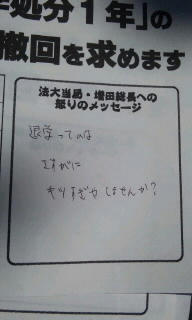 処分1年」の
撤回を求めます
法大当局・増田総長への
怒りのメッセージ
退学ってのは
さすがに
キツすぎやしませんか?